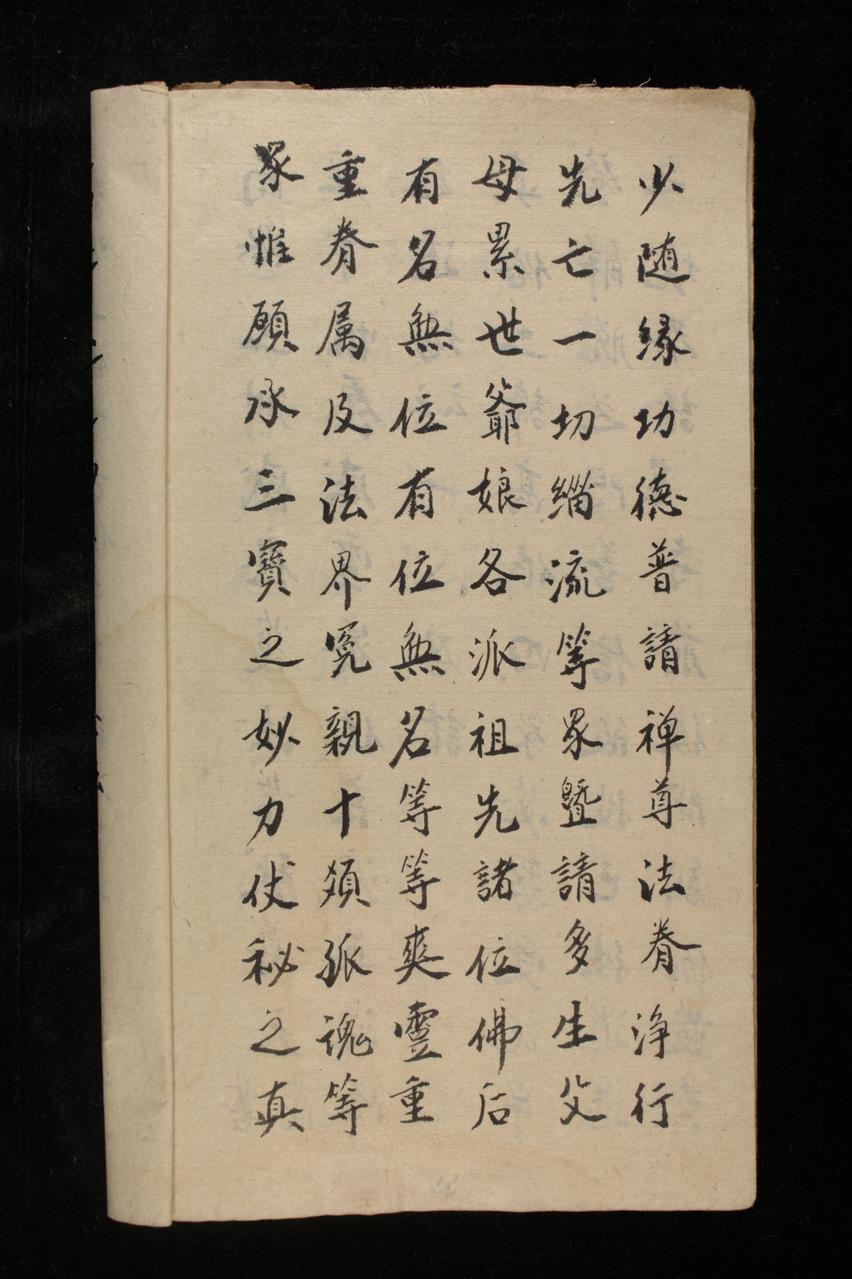 少随緣功德普請禅尊法眷淨行
先亡一切緇流等眾暨請多生父
母累世爺娘各派祖先諸位佛后
有名無位有位無名等等爽靈重
重眷属及法界冤親十類孤魂等
眾惟願承三寶之妙力仗秘之真